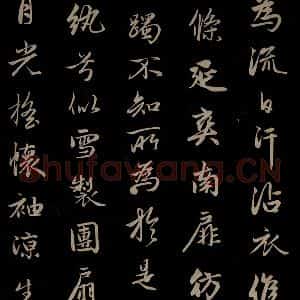 為流日汗沾衣
條延奕南扉彷
躅不知所為於是
紈兮似雪製團扇
月光搖懷袖涼生
shufawang.CN